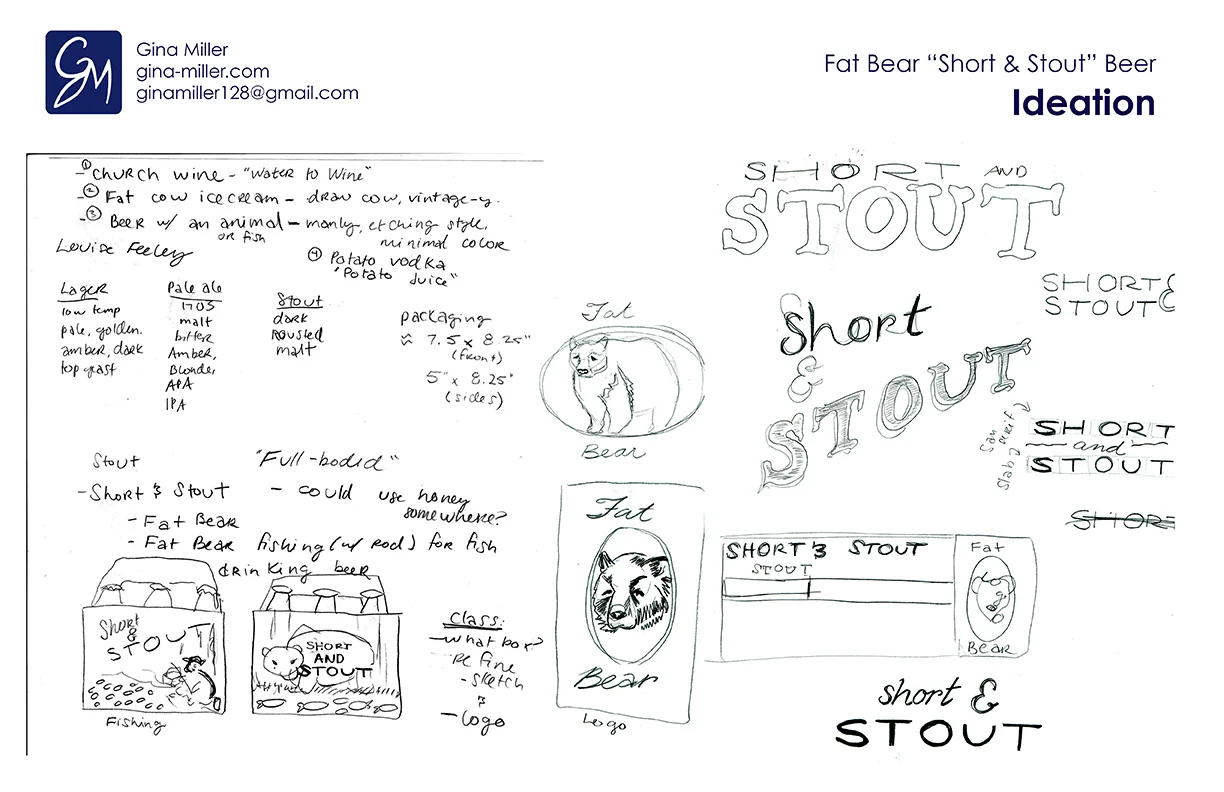 GM
Gina Miller
gina-miller.com
ginamiller128@gmail.com
Fat Bear “Short & Stout” Beer
Ideation
① Church wine - "Water to Wine"
-② Fat cow icecream - draw cow, vintage-y.
-③ Beer w/ an animal - manly, etching style,
or fish
minimal color
Louise Feeley
④ Potato vodka
"Potato Juice"
Lager
low temp
pale, golden.
amber, dark
top
Pale ale
1703
malt
bitter
Amber,
Blonde,
APA
IPA
Stout
dark
roasted
malt
packaging
≈ 7.5 x 8.25"
(front)
5" x 8.25"
(sides)
Stout
- Short & Stout
- Fat Bear
- Fat Bear fishing (w/ rod) for fish
drinking beer
"Full-bodied"
- could use honey
somewhere?
Short
&
STOUT
Fishing
SHORT
AND
STOUT
Class:
- what box?
refine
- sketch
&
- logo
Fat
Bear
Fat
Bear
Logo
SHORT AND
STOUT
SHORT &
STOUT
Short
&
STOUT
San serif
Slab
SHORT
and
STOUT
SHORE
SHORT & STOUT
STOUT
Fat
Bear
short &
STOUT